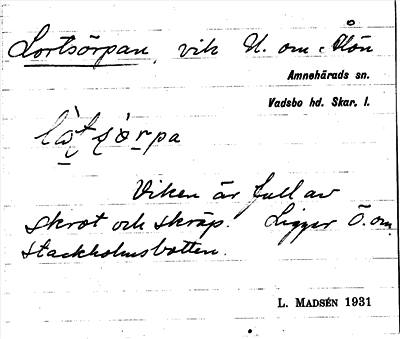 Lortsörpan, vik N. om Hön
Amnehärads sn.
Vadsbo hd. Skar. l.
Viken är full av
skrot och skräp. Ligger Ö. om
Stackholmsbotten.
L. MADSÉN 1931